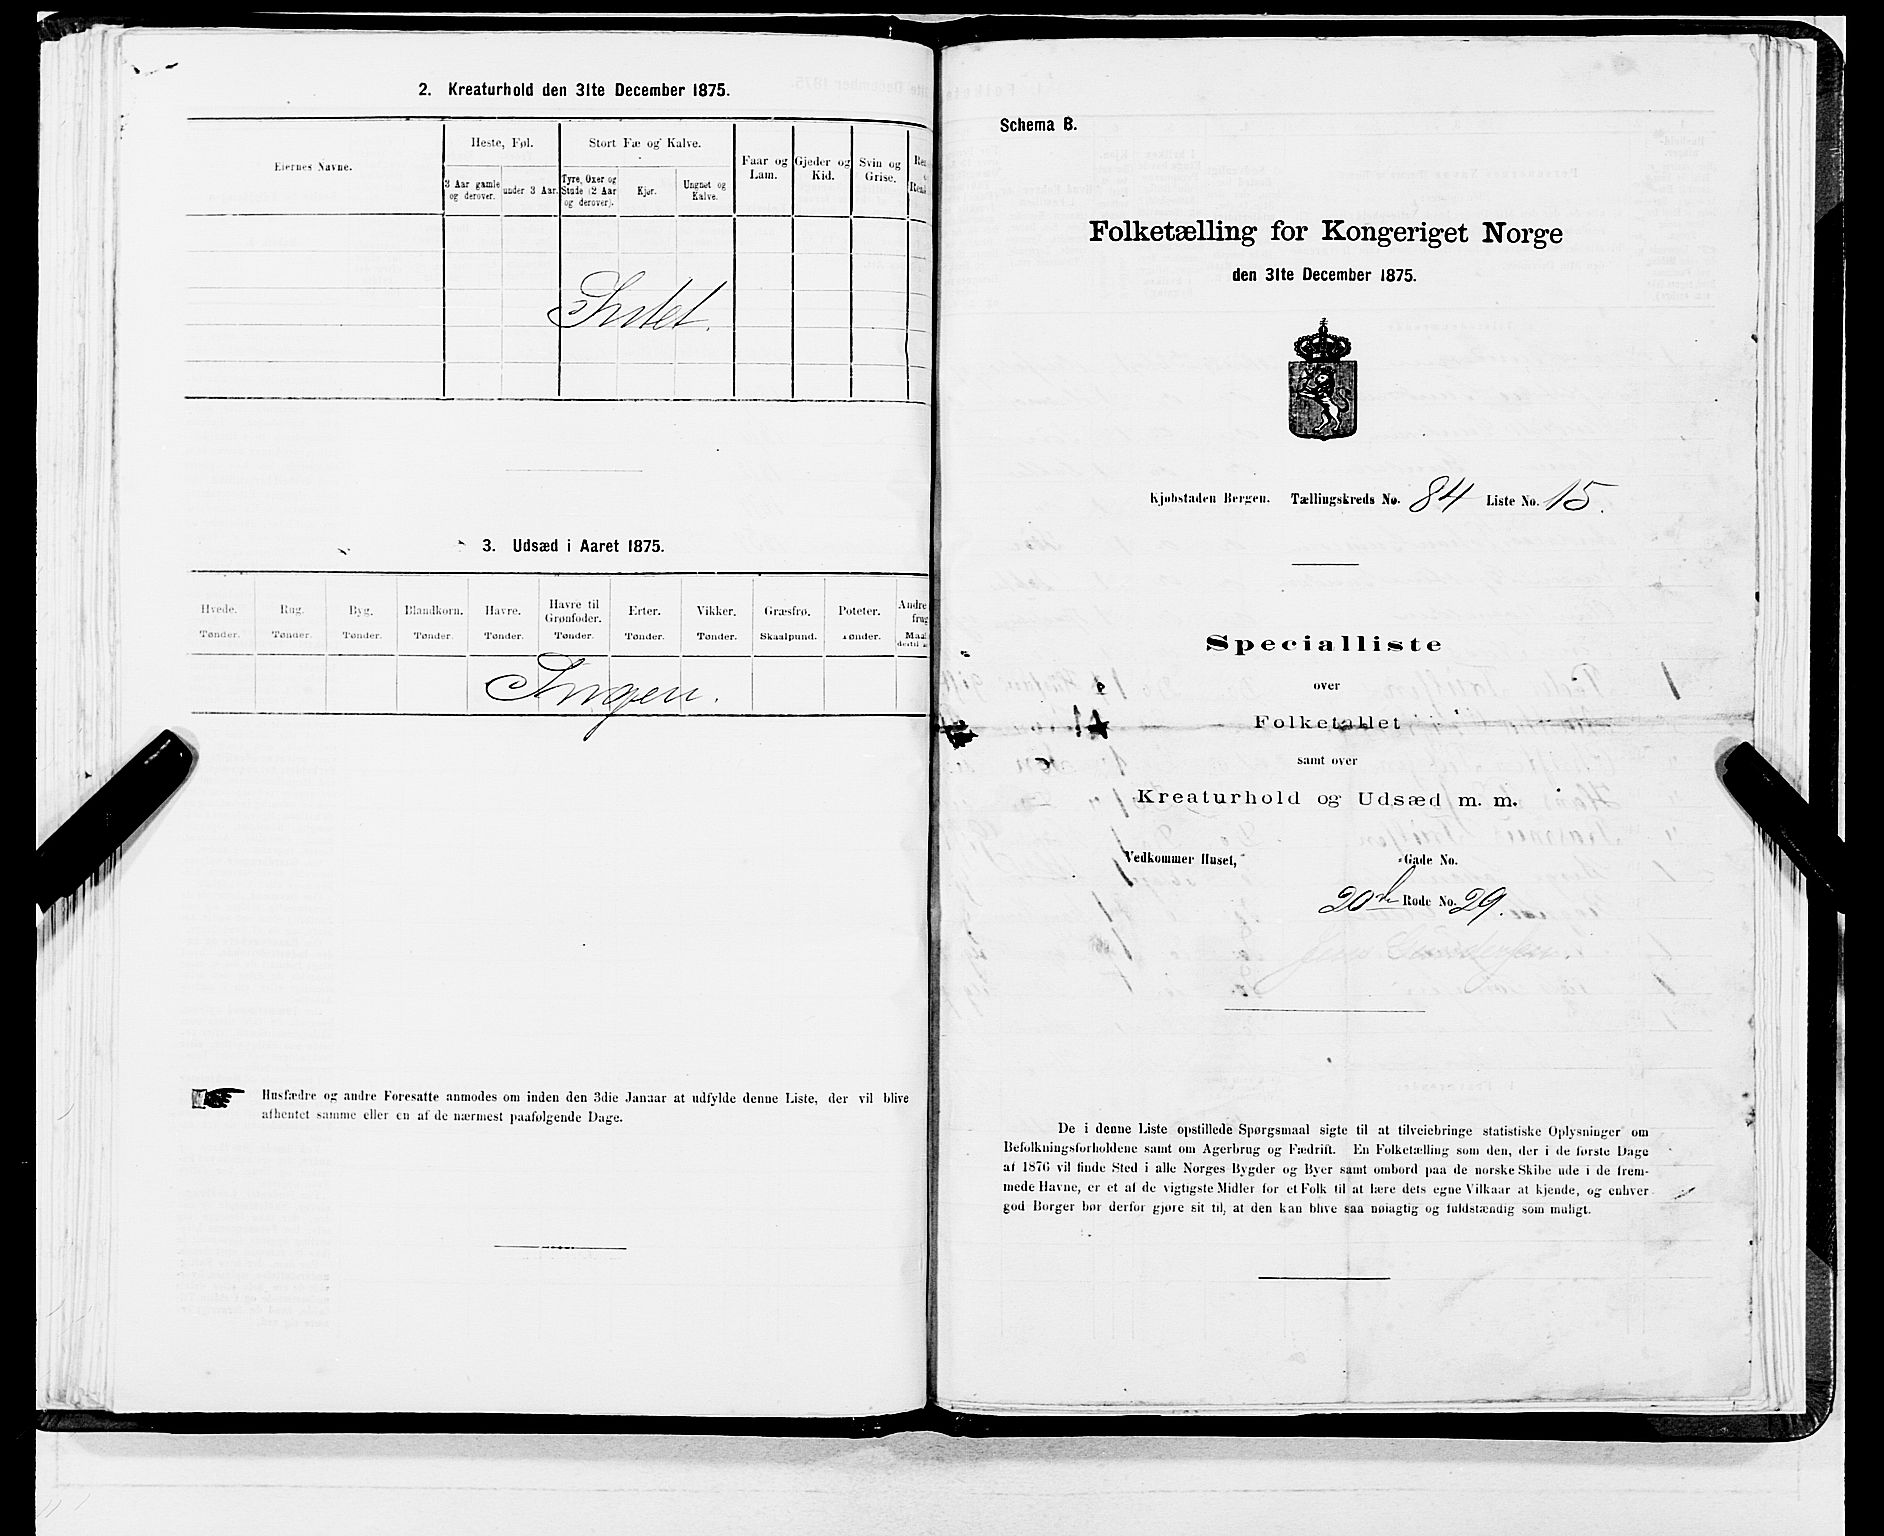 2. Kreaturhold den 31te December 1875.
Eiernes Navne.
Heste, Føl.
Stort Fæ og Kalve.
Faar og Lam.
Gjeder og Kid.
Svin og Grise.
3 Aar gamle og derover.
under 3 Aar.
Tyre, Oxer og Stude (2 Aar og derover).
Kjør.
Ungnøt og Kalve.
Intet.
3. Udsæd i Aaret 1875.
Hvede. Rug. Byg. Blandkorn. Havre. Havre til Grønfoder. Erter. Vikker. Græsfrø. Poteter. Andre
Tønder. Tønder. Tønder. Tønder. Tønder. Tønder. Tønder. Tønder. Skaalpund. Tønder.
Ingen.
Husfædre og andre Foresatte anmodes om inden den 3die Januar at udfylde denne Liste, der vil blive
afhentet samme eller en af de nærmest paafølgende Dage.
Schema B.
Folketælling for Kongeriget Norge
den 31te December 1875.
Kjøbstaden Bergen. Tællingskreds No. 84 Liste No. 15.
Specialliste
over
Folketallet
samt over
Kreaturhold og Udsæd m. m.
Vedkommer Huset, Gade No.
20de Rode No. 29.
De i denne Liste opstillede Spørgsmaal sigte til at tilveiebringe statistiske Oplysninger om
Befolkningsforholdene samt om Agerbrug og Fædrift. En Folketælling som den, der i de første Dage
af 1876 vil finde Sted i alle Norges Bygder og Byer samt ombord paa de norske Skibe ude i de frem-
mede Havne, er et af de vigtigste Midler for et Folk til at lære dets egne Vilkaar at kjende, og enhver
god Borger bør derfor gjøre sit til, at den kan blive saa nøiagtig og fuldstændig som muligt.